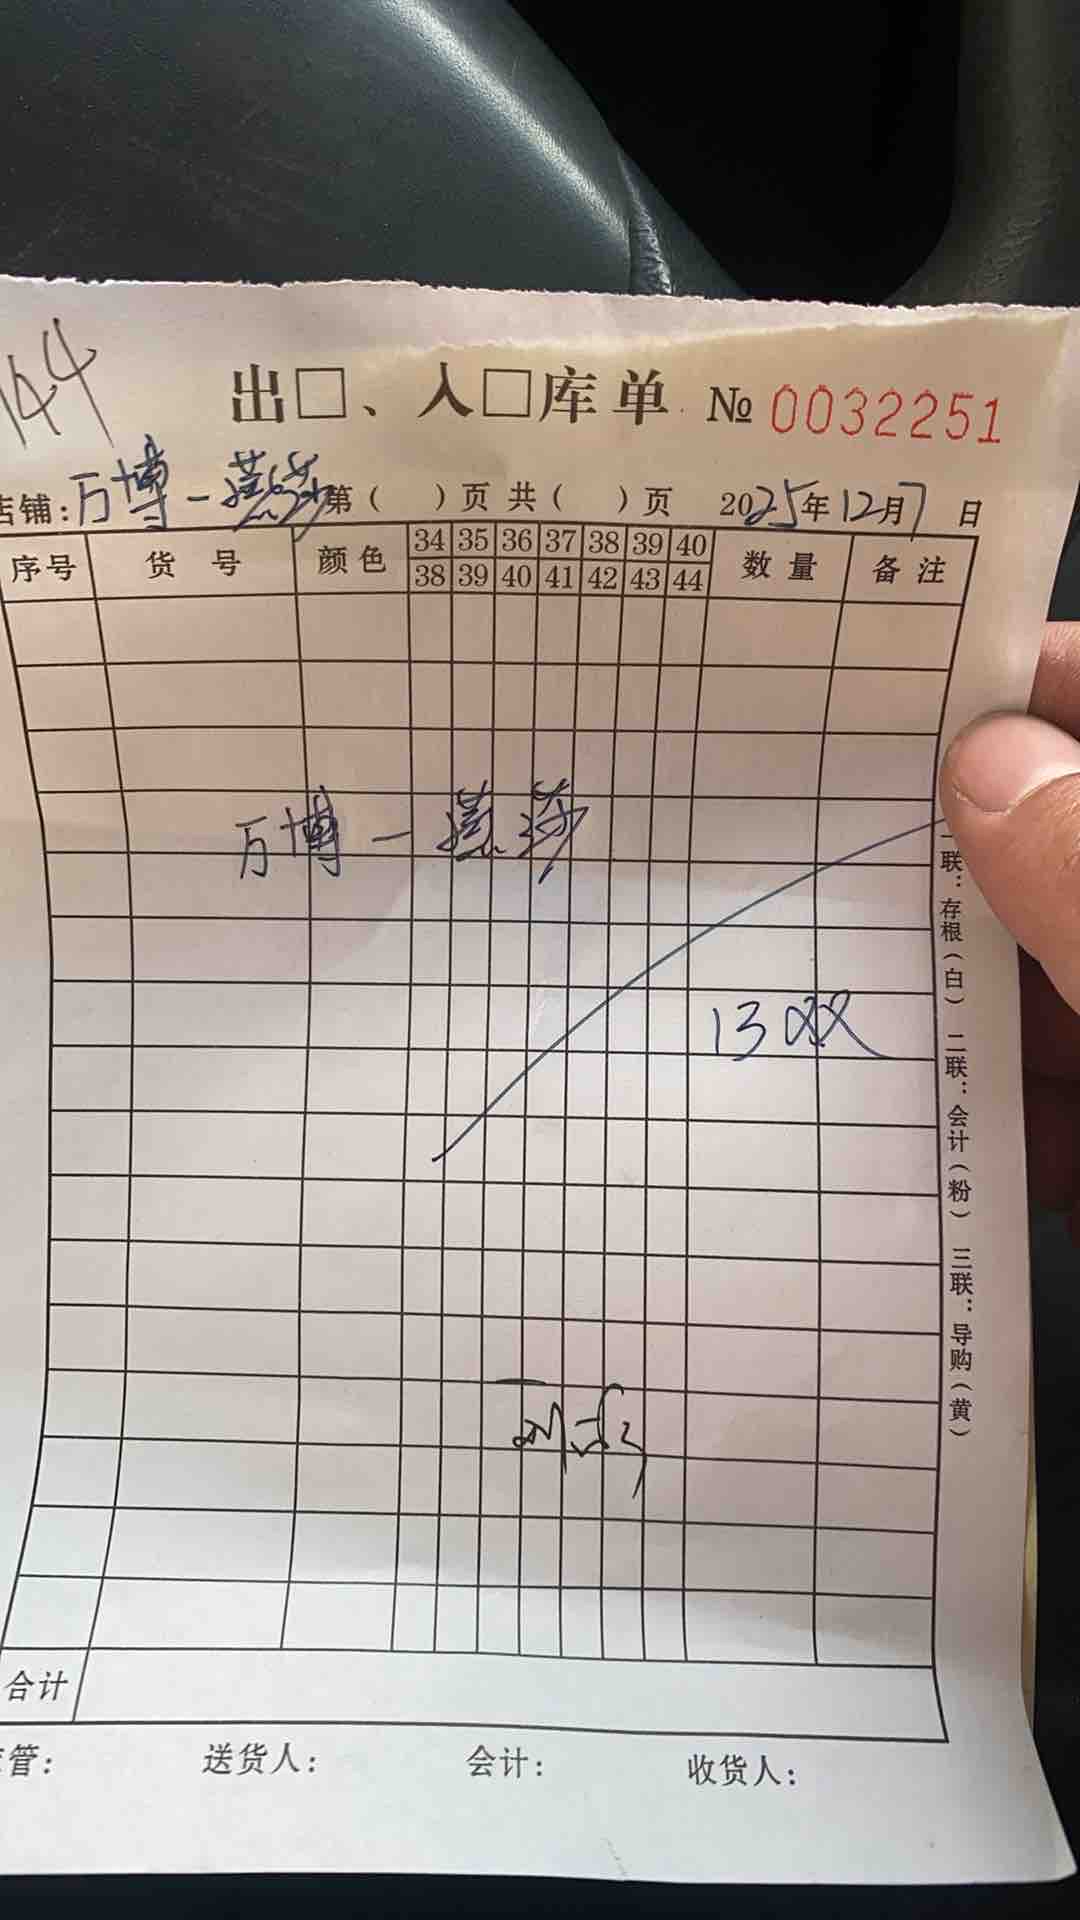 144
出□、入□库单 № 0032251
店铺:万博一燕莎 第( )页 共( )页 2025年12月7日
序号 货号 颜色 34 35 36 37 38 39 40 数量 备注
38 39 40 41 42 43 44
万博一燕莎
13双
一联:存根(白) 二联:会计(粉) 三联:导购(黄)
合计
管: 送货人: 会计: 收货人: